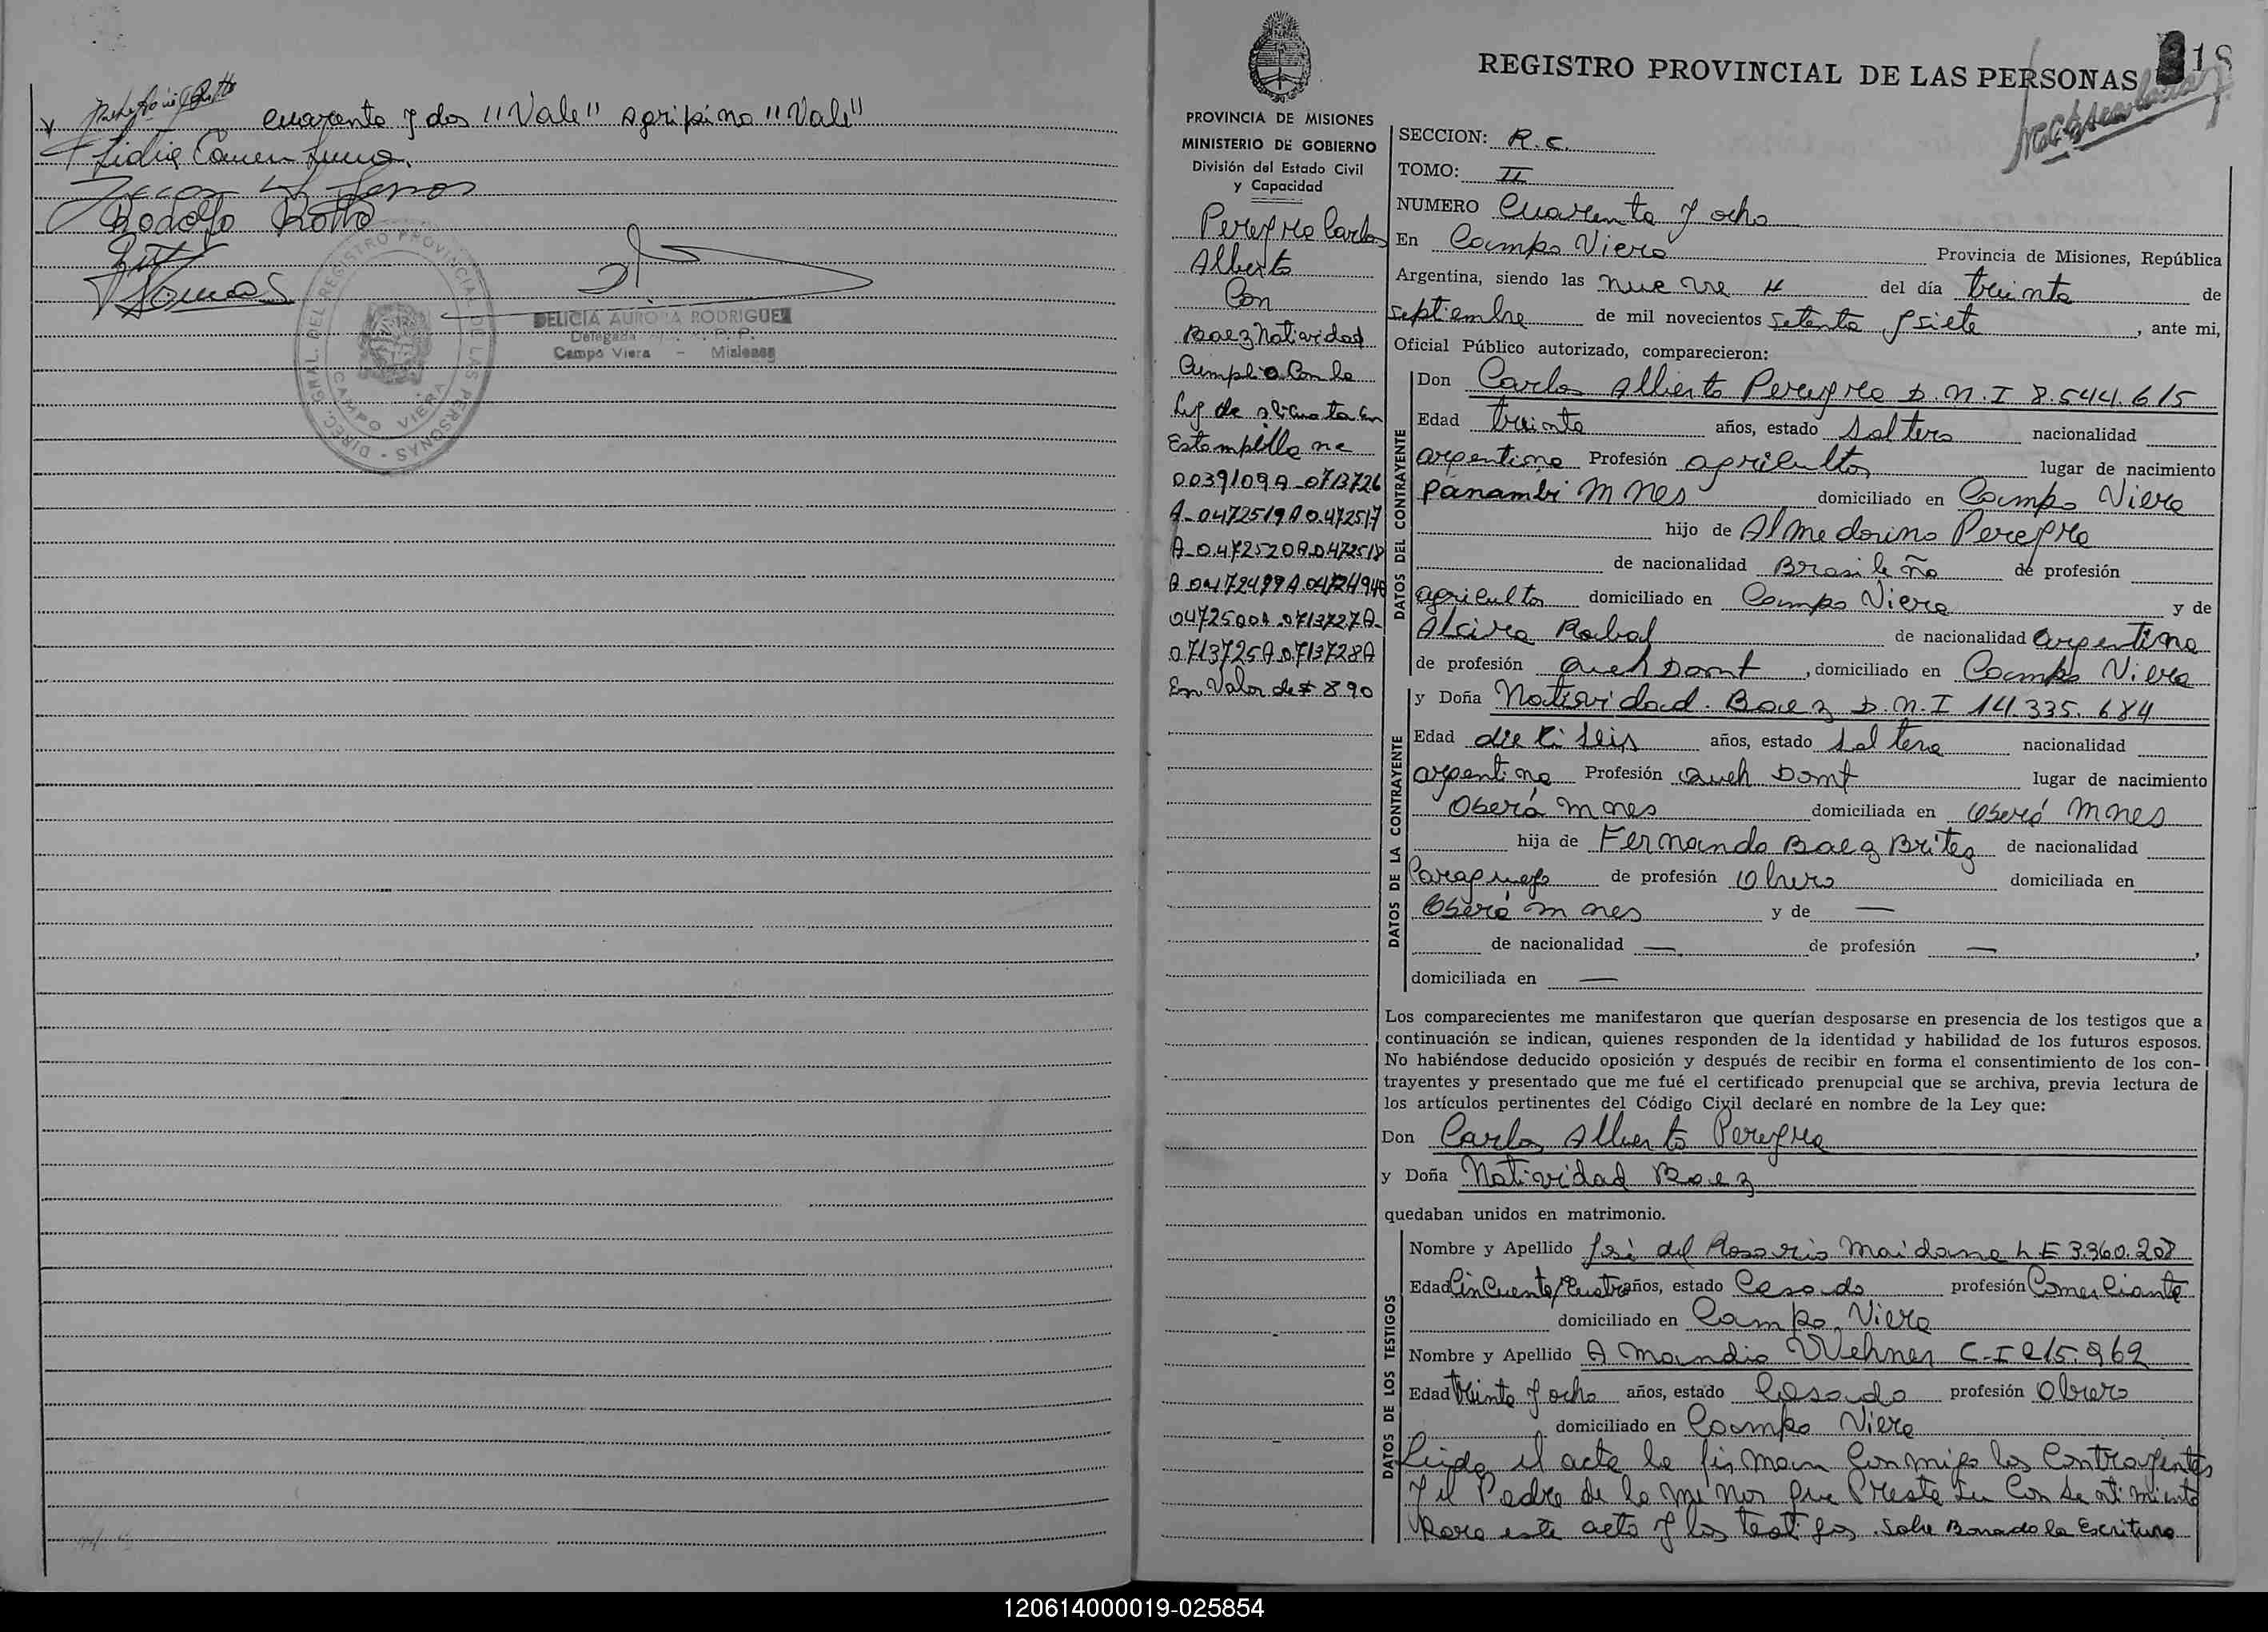 cuarenta y dos "Vale" Agripina "Vale"
Rodolfo Rotto
DIREC. GRAL. DEL REGISTRO PROVINCIAL DE LAS PERSONAS - CAMPO VIERA
DELICIA AURORA RODRIGUEZ
Delegada
Campo Viera - Misiones
REGISTRO PROVINCIAL DE LAS PERSONAS
PROVINCIA DE MISIONES
MINISTERIO DE GOBIERNO
División del Estado Civil
y Capacidad
Pereyra Carlos
Alberto
Con
Baez Natividad
Cumplio Con la
Ley de alicuota en
Estampilla ne
0039109A-0713726
A-0472519A0.472517
A-0472520A.0472518
A-0472499A.0472494
0472500A.0713727A-
0713725A.0713728A
En Valor de $ 890
SECCION: R.C.
TOMO: II
NUMERO Cuarenta y ocho
En Campo Viera Provincia de Misiones, República
Argentina, siendo las nueve H del día treinta de
septiembre de mil novecientos setenta y siete, ante mi,
Oficial Público autorizado, comparecieron:
DATOS DEL CONTRAYENTE
Don Carlos Alberto Pereyra D.N.I 8.544.615
Edad treinta años, estado soltero nacionalidad
argentina Profesión agricultor lugar de nacimiento
Panambi Mnes domiciliado en Campo Viera
hijo de Almedorino Pereyra
de nacionalidad Brasileño de profesión
agricultor domiciliado en Campo Viera y de
Alcira Rabal de nacionalidad argentina
de profesión Queh Domt, domiciliado en Campo Viera
DATOS DE LA CONTRAYENTE
y Doña Natividad. Baez D.N.I 14.335.684
Edad dieciseis años, estado soltera nacionalidad
argentina Profesión Queh Domt lugar de nacimiento
Oberá Mnes domiciliada en Oberá Mnes
hija de Fernando Baez Britez de nacionalidad
Paraguayo de profesión Obrero domiciliada en
Oberá Mnes y de —
de nacionalidad — de profesión —,
domiciliada en —
Los comparecientes me manifestaron que querían desposarse en presencia de los testigos que a
continuación se indican, quienes responden de la identidad y habilidad de los futuros esposos.
No habiéndose deducido oposición y después de recibir en forma el consentimiento de los con-
trayentes y presentado que me fué el certificado prenupcial que se archiva, previa lectura de
los artículos pertinentes del Código Civil declaré en nombre de la Ley que:
Don Carlos Alberto Pereyra
y Doña Natividad Baez
quedaban unidos en matrimonio.
DATOS DE LOS TESTIGOS
Nombre y Apellido José del Rosario Maidana L E 3.360.208
Edad Cincuenta y Cuatro años, estado Casado profesión Comerciante
domiciliado en Campo Viera
Nombre y Apellido Amandio Wehner C-I 215.962
Edad treinta y ocho años, estado Casado profesión Obrero
domiciliado en Campo Viera
Leida el acta la firman Conmigo los Contrayentes
y el Padre de la menor que Presta su Consentimiento
Para este acto y los testigos. Sobre Borrado la Escritura
120614000019-025854